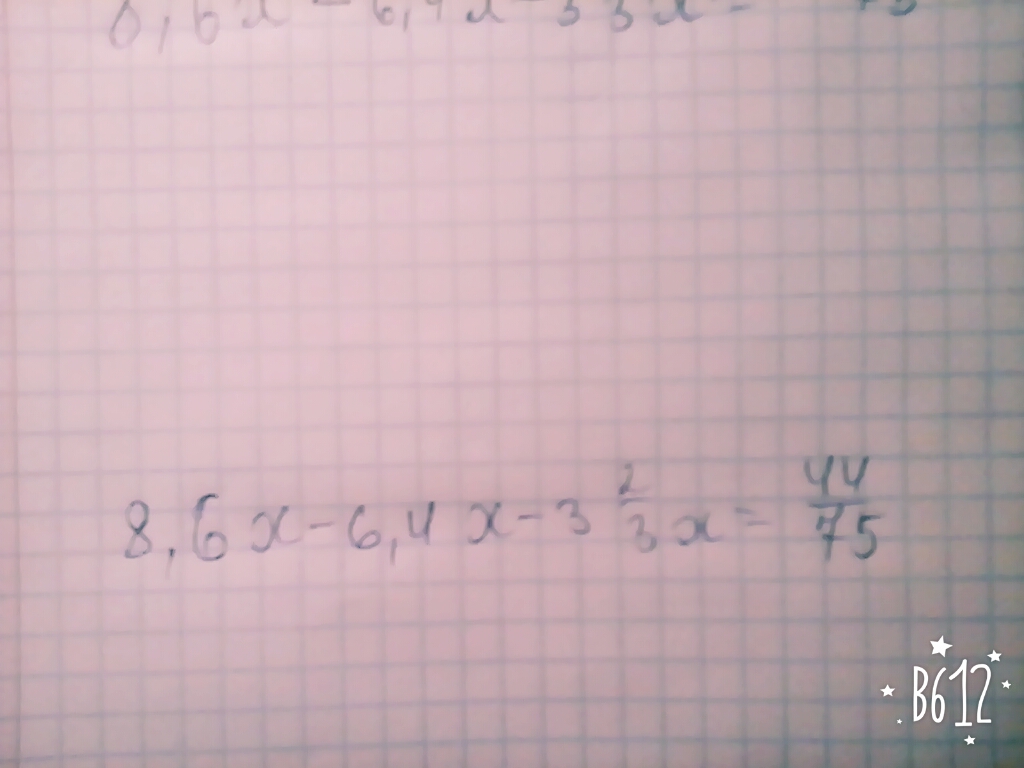 8,6x - 6,4x - 3 2/3 x = 44/75
B612